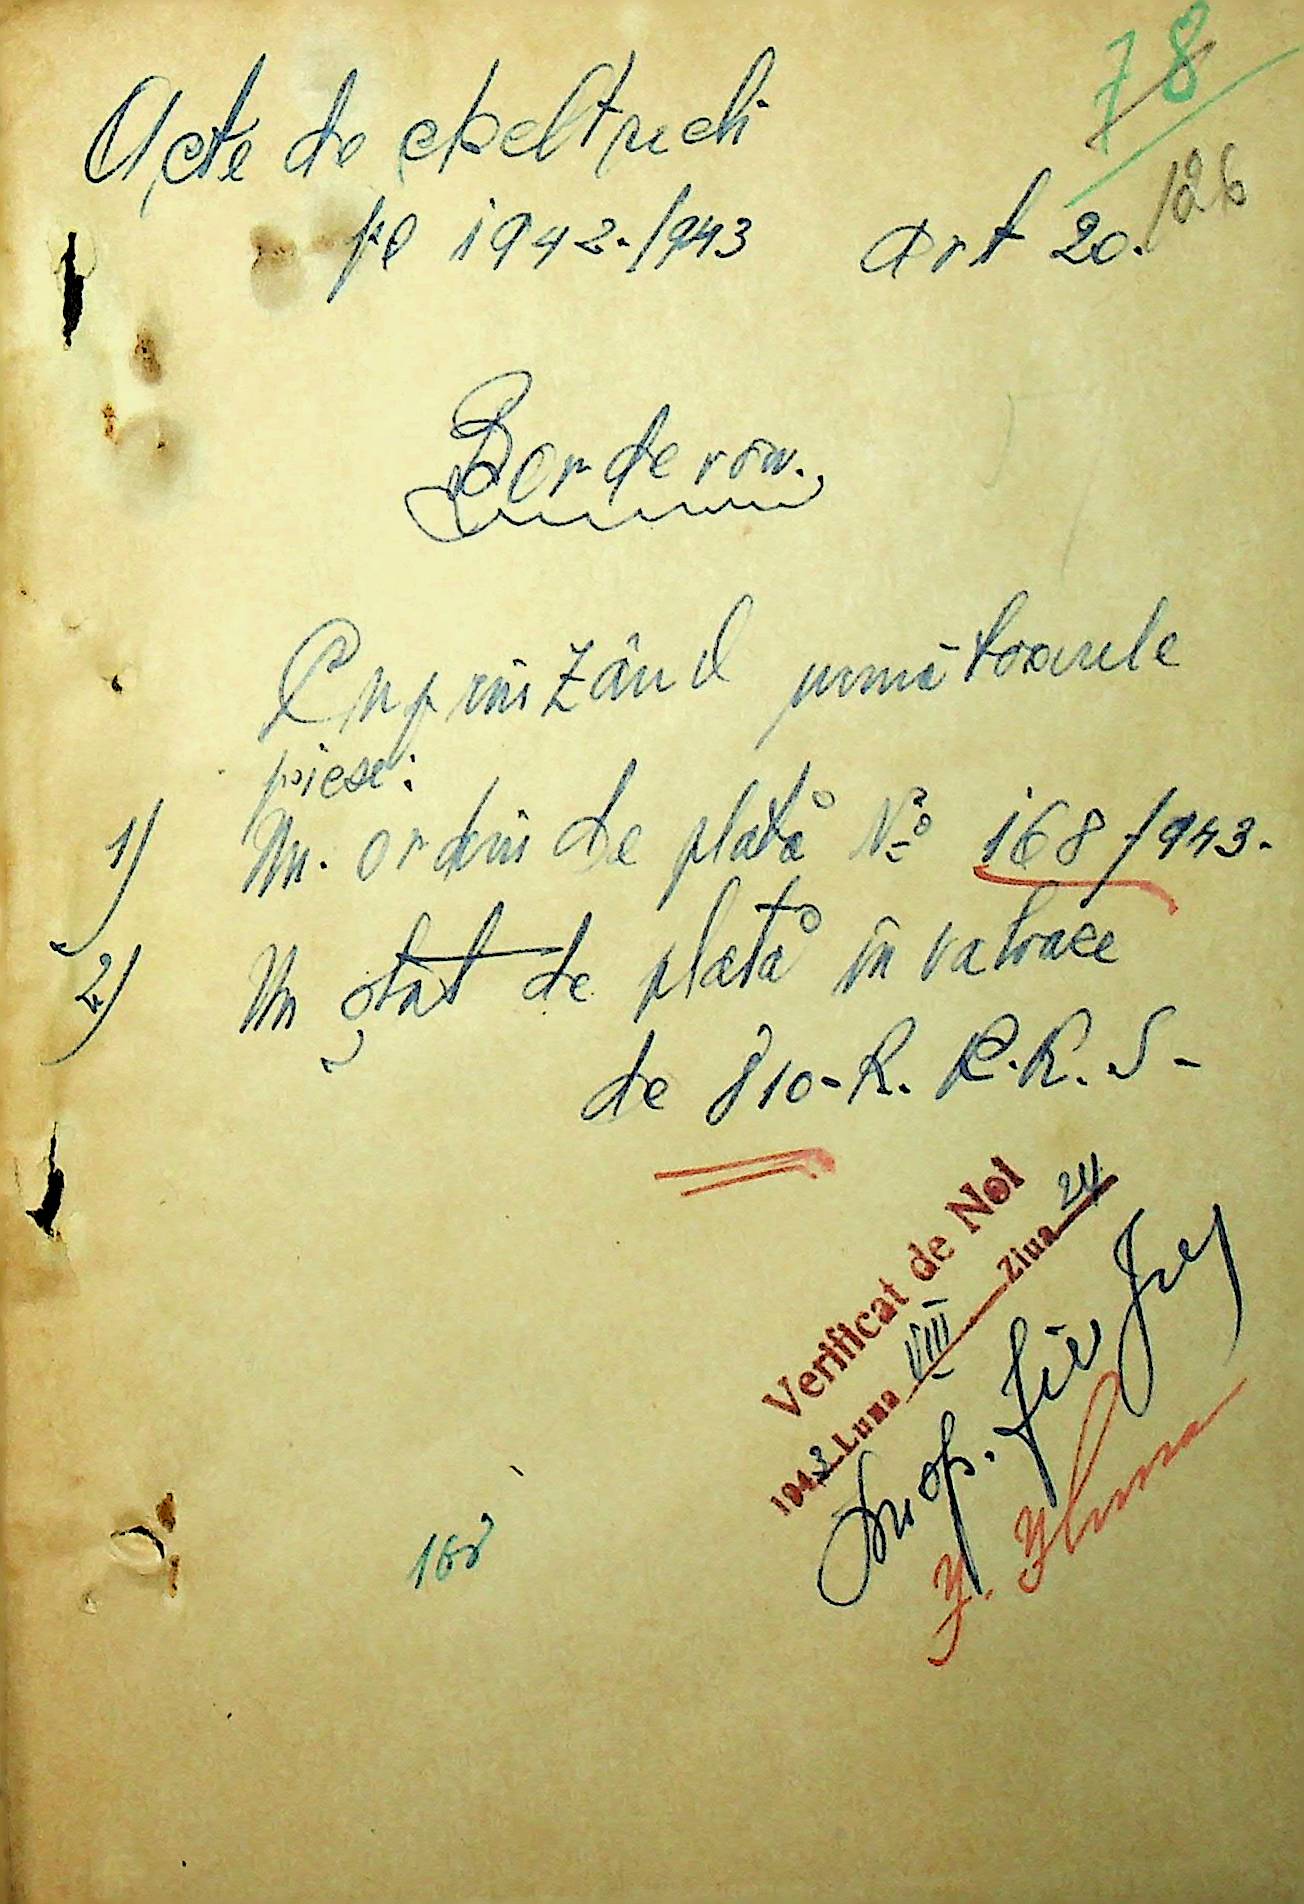 78
126
Acte de cheltueli
pe 1942-/943 art 20.
Borderou.
Cuprinzând următoarele
piese:
1) Un ordin de plată No 168/943.
2) Un ștat de plată în valoare
de 810-R. R.K.S-
Verificat de Noi
1943 Luna VIII Ziua 24
Insp. fin
168